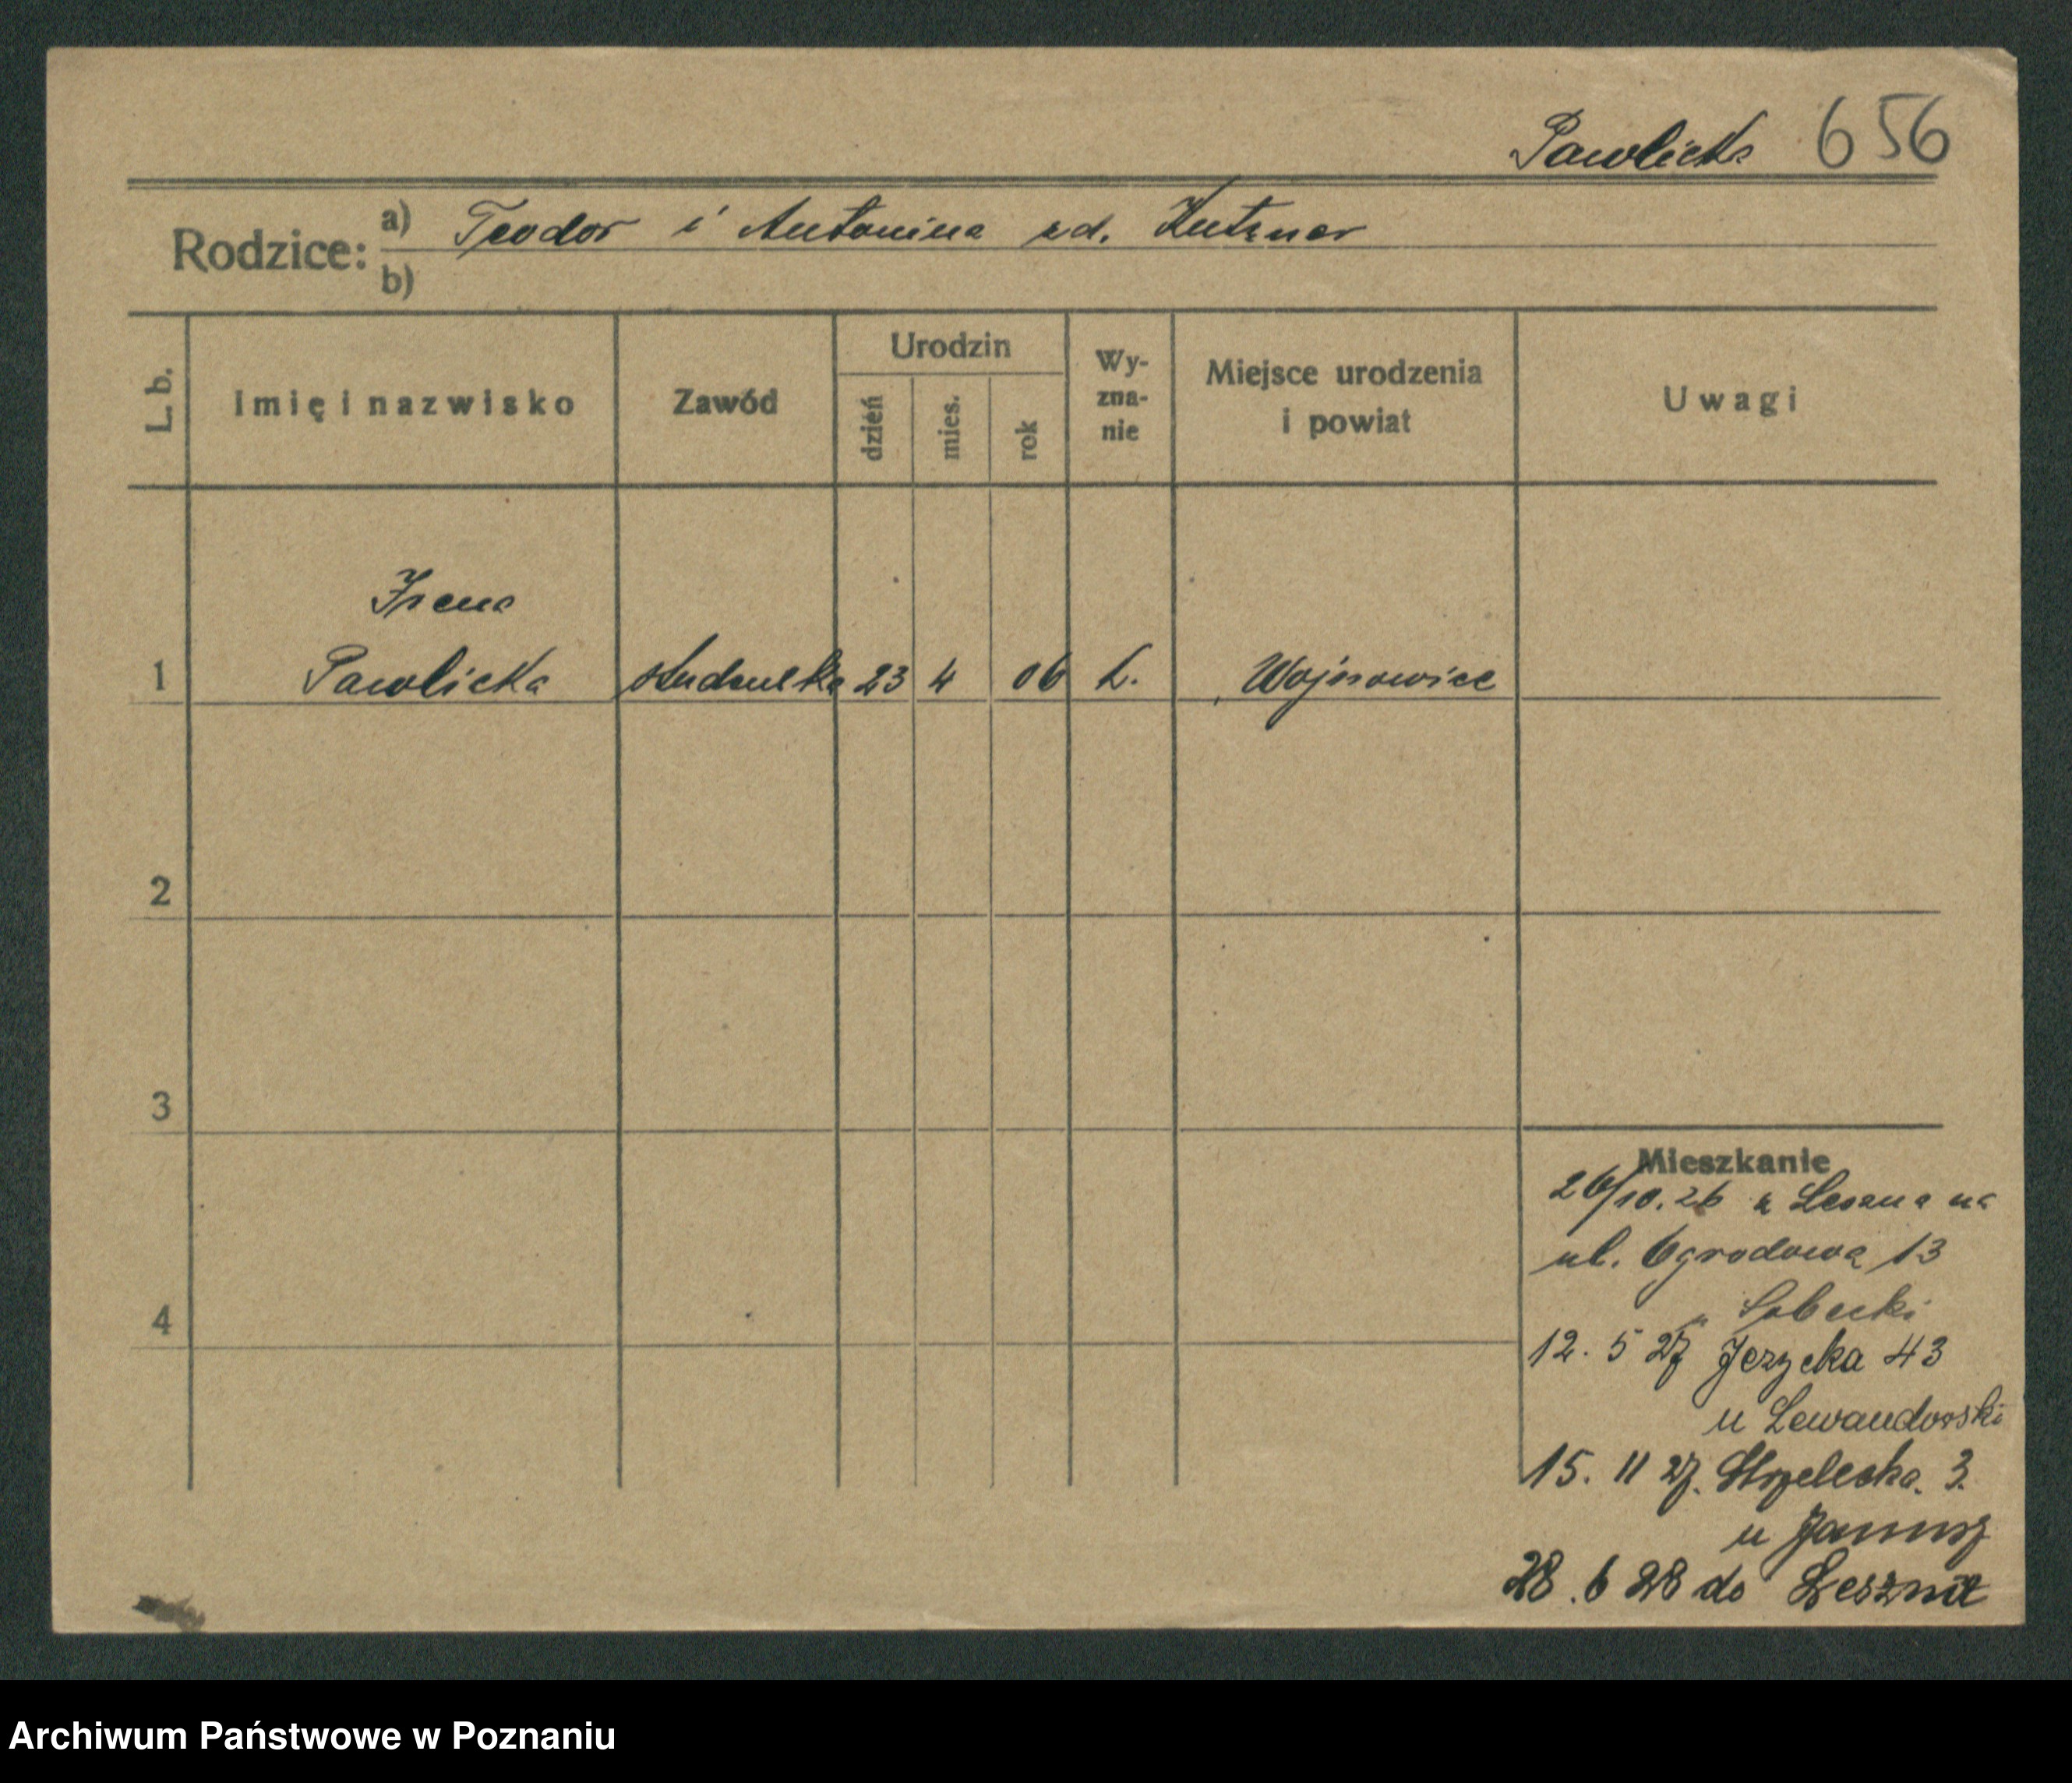 Pawlicka 656
Rodzice: a) Teodor i Antonina zd. Kutzner
b)
L. b.
Imię i nazwisko
Zawód
Urodzin
dzień
mies.
rok
Wy-
zna-
nie
Miejsce urodzenia
i powiat
Uwagi
Irena
1 Pawlicka studentka 23 4 06 k. Wojnowice
2
3
4
Mieszkanie
26/10.26 z Leszna na
ul. Ogrodowa 13
u Sobecki
12. 5 27 Jezycka 43
u Lewandowski
15. 11 27. Strzelecka. 3.
u Janusz
28. 6 28 do Leszna
Archiwum Państwowe w Poznaniu